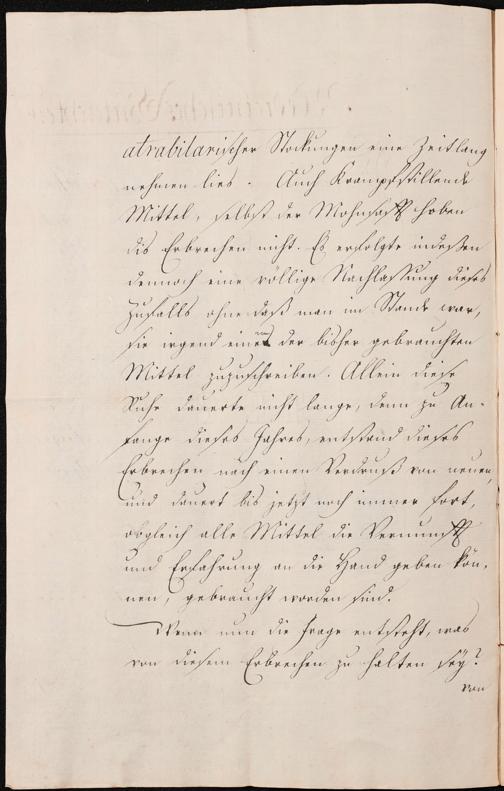 atrabilarischer Stockungen eine Zeitlang
nehmen lies. Auch Krampfstillende
Mittel, selbst der Mohnsaft hoben
dis Erbrechen nicht. Es erfolgte indeßen
dennoch eine völlige Nachlassung dieses
Zufalls ohne daß man im Stande war,
sie irgend einem der bisher gebrauchten
Mittel zuzuschreiben. Allein diese
Ruhe dauerte nicht lange, denn zu An-
fange dieses Jahres, entstand dieses
Erbrechen nach einen Verdruß von neuen,
und dauert bis jetzt noch immer fort,
obgleich alle Mittel die Vernunft
und Erfahrung an die Hand geben kön-
nen, gebraucht worden sind.
Wenn nun die Frage entsteht, was
von diesem Erbrechen zu halten sey?
von